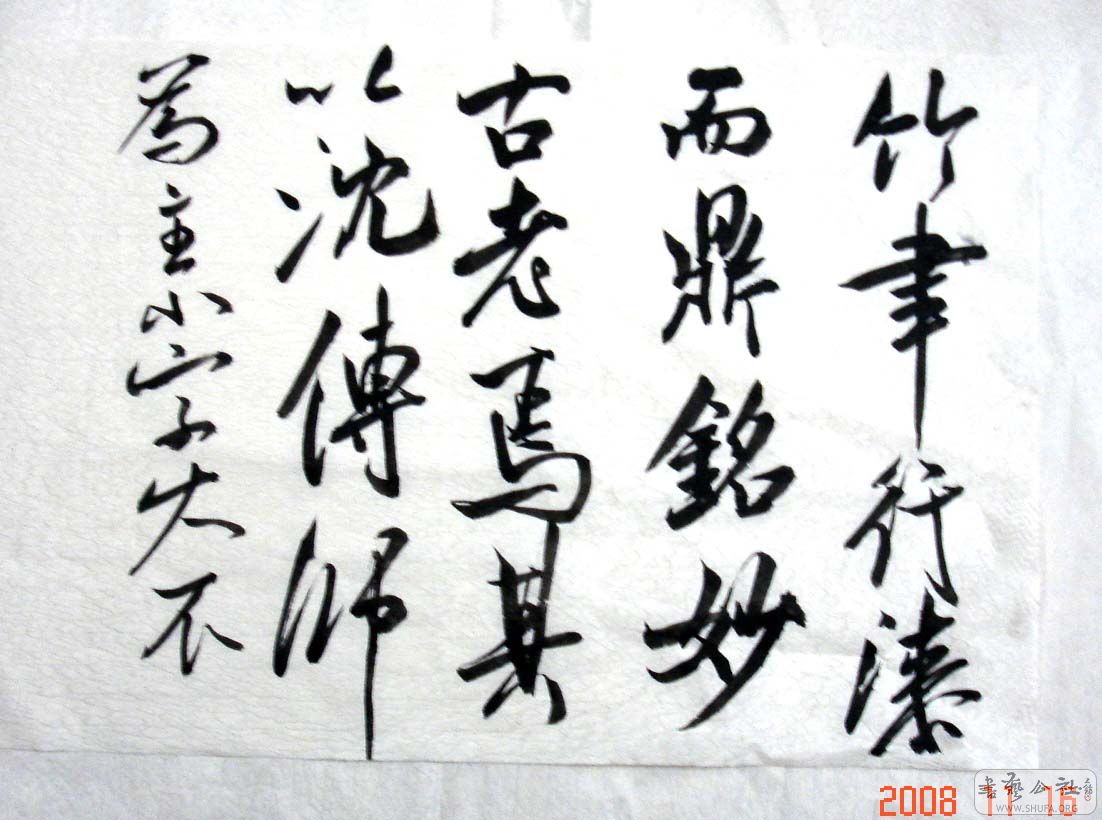 竹聿行漆
而鼎銘妙
古老焉其
以沈傳師
為主小字大不
2008 11 16
書藝公社
WWW.SHUFA.ORG